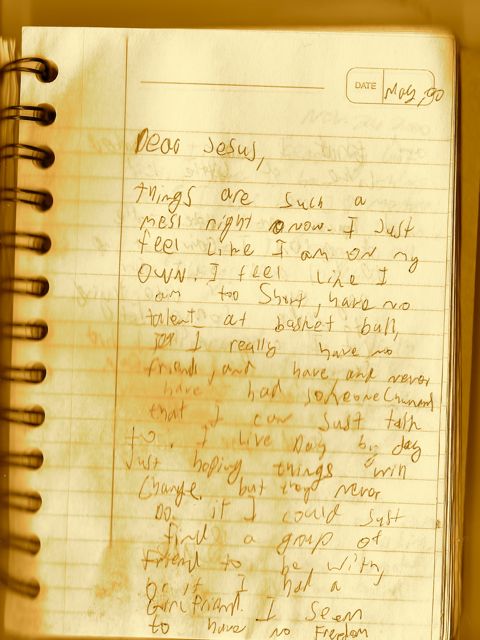 DATE May, 90
Dear Jesus,
things are such a
mess right now. I Just
feel like I am on my
own. I feel like I
am too Short, have no
talent at basket ball,
I really have no
friends, and have and never
have had someone
that I can Just talk
to. I live Day by day
Just hoping things win
change, but they never
Do. if I could Just
find a group of
friend to be with,
or if I had a
Girlfriend. I seem
to have no Freedom